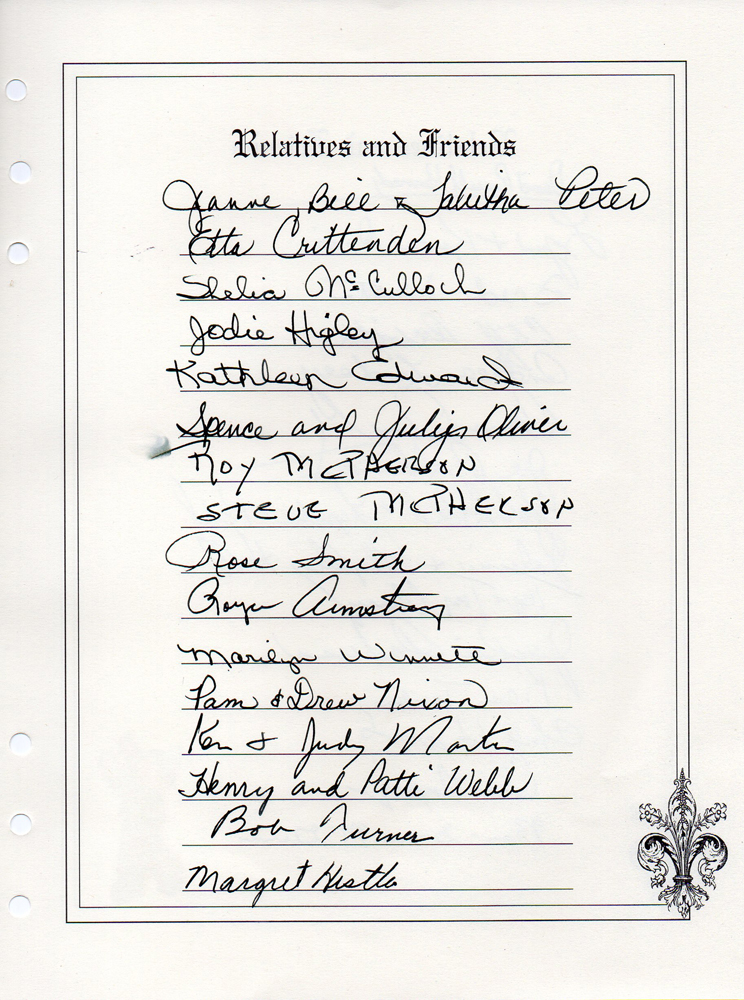 Relatives and Friends
Jeanne, Bill & Tabitha Peter
Etta Crittenden
Shelia McCulloch
Jodie Higley
Kathleen Edward
Spence and Oliver
Roy McPHERSON
STEVE McPHERSON
Rose Smith
Roger Armstrong
Marilyn Winnett
Pam & Drew Nixon
Ken & Judy Martin
Henry and Patti Webb
Bob Turner
Margret